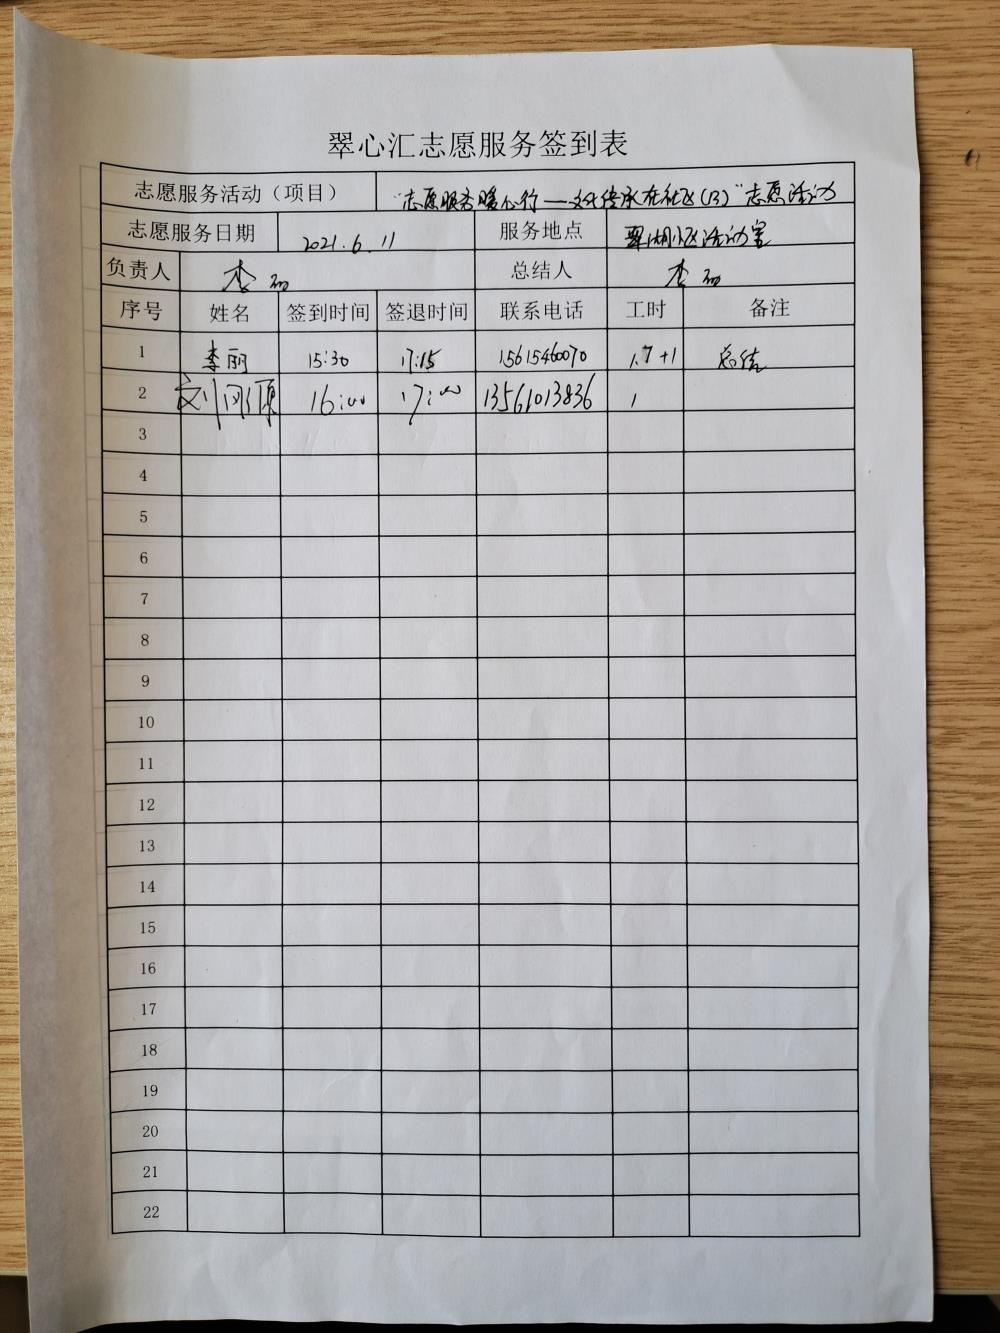 翠心汇志愿服务签到表
志愿服务活动（项目） “志愿服务暖心行——文化传承在社区(13)”志愿活动
志愿服务日期 2021.6.11 服务地点 翠湖小区活动室
负责人 李丽 总结人 李丽
序号 姓名 签到时间 签退时间 联系电话 工时 备注
1 李丽 15:30 17:15 15615460070 1.7+1 总结
2 刘 16:00 17:00 13561013836 1
3
4
5
6
7
8
9
10
11
12
13
14
15
16
17
18
19
20
21
22